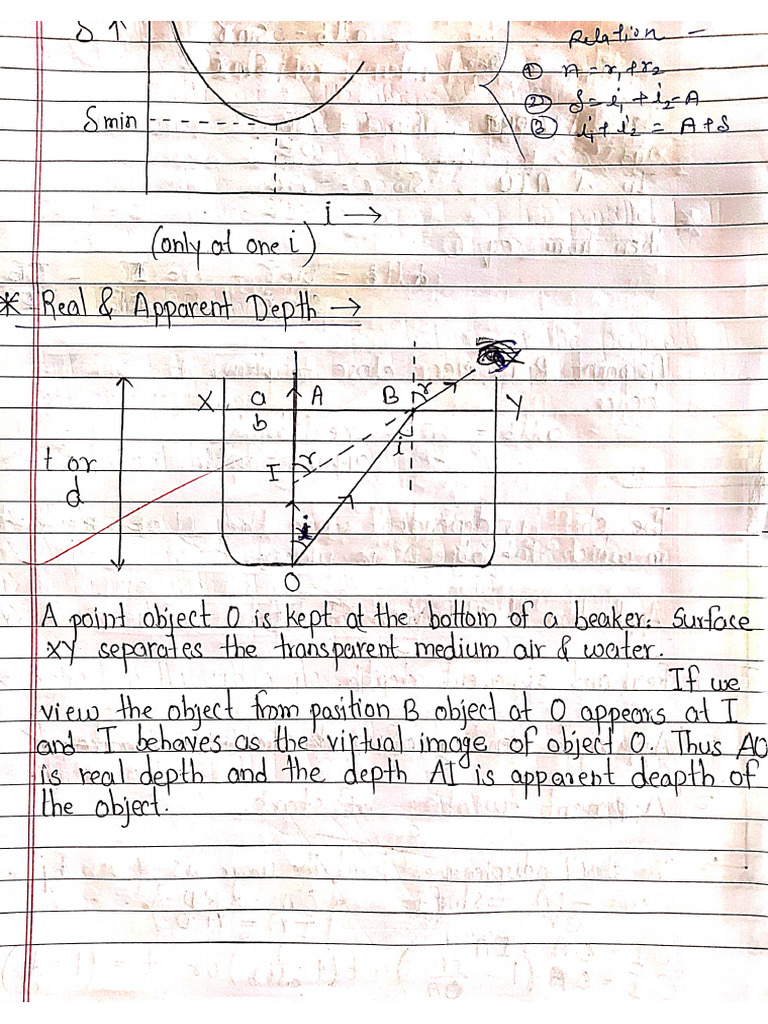 δ ↑
Relation -
① A = r₁+r₂
② δ = i₁ + i₂ = A
③ i₁ + i₂ = A + δ
δ min
i →
(only at one i)
* Real & Apparent Depth →
X a A B r Y
b
t or I r i
d
i
O
A point object O is kept at the bottom of a beaker. Surface
XY separates the transparent medium air & water.
If we
view the object from position B object at O appears at I
and I behaves as the virtual image of object O. Thus AO
is real depth and the depth AI is apparent deapth of
the object.